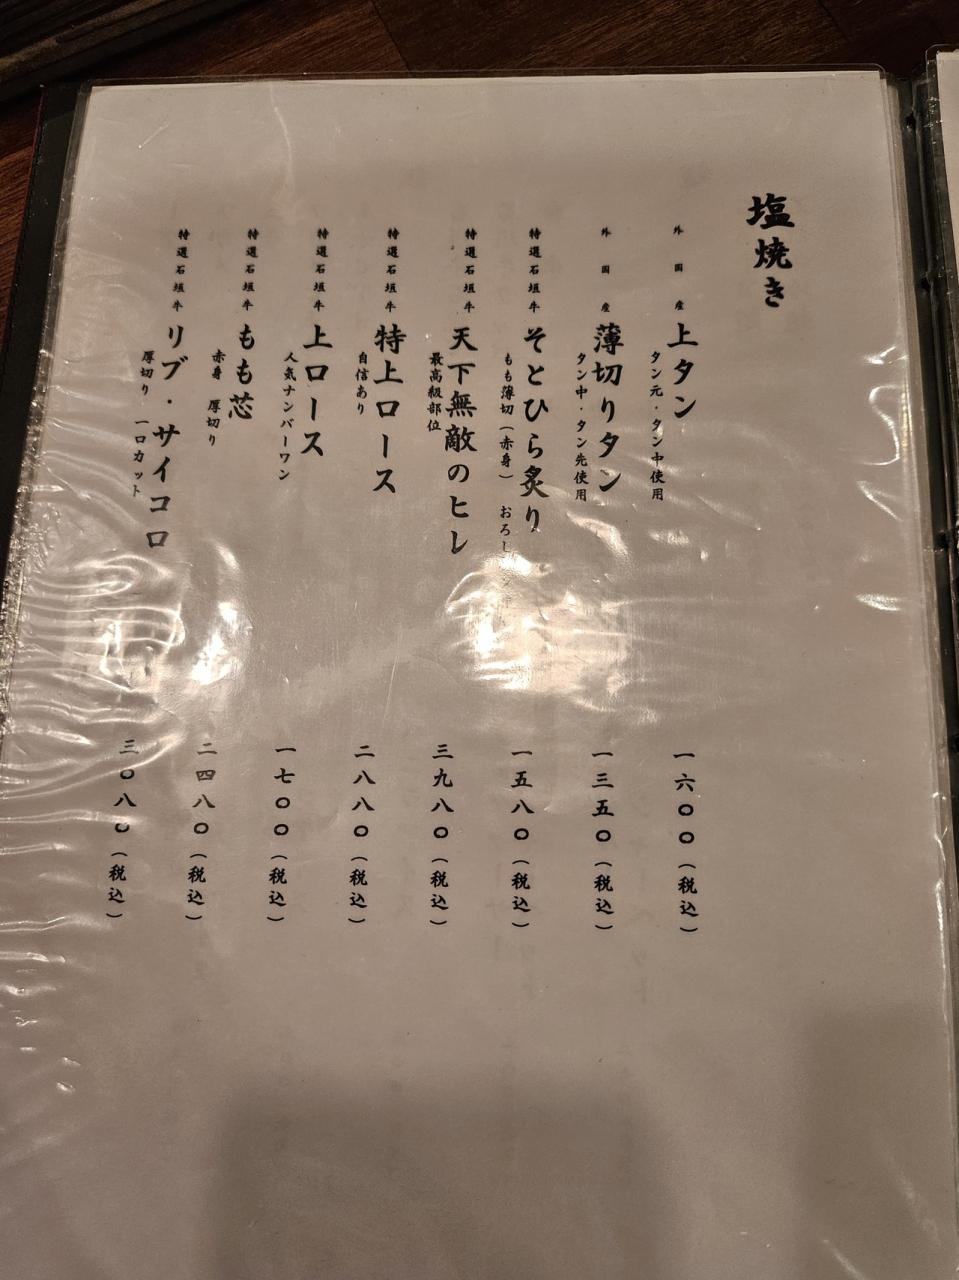 塩焼き
外国産 上タン
タン元・タン中使用
一六〇〇(税込)
外国産 薄切りタン
タン中・タン先使用
一三五〇(税込)
特選石垣牛 そとひら炙り
もも薄切(赤身) おろし
一五八〇(税込)
特選石垣牛 天下無敵のヒレ
最高級部位
三九八〇(税込)
特選石垣牛 特上ロース
自信あり
二八八〇(税込)
特選石垣牛 上ロース
人気ナンバーワン
一七〇〇(税込)
特選石垣牛 もも芯
赤身 厚切り
二四八〇(税込)
特選石垣牛 リブ・サイコロ
厚切り 一口カット
三〇八〇(税込)